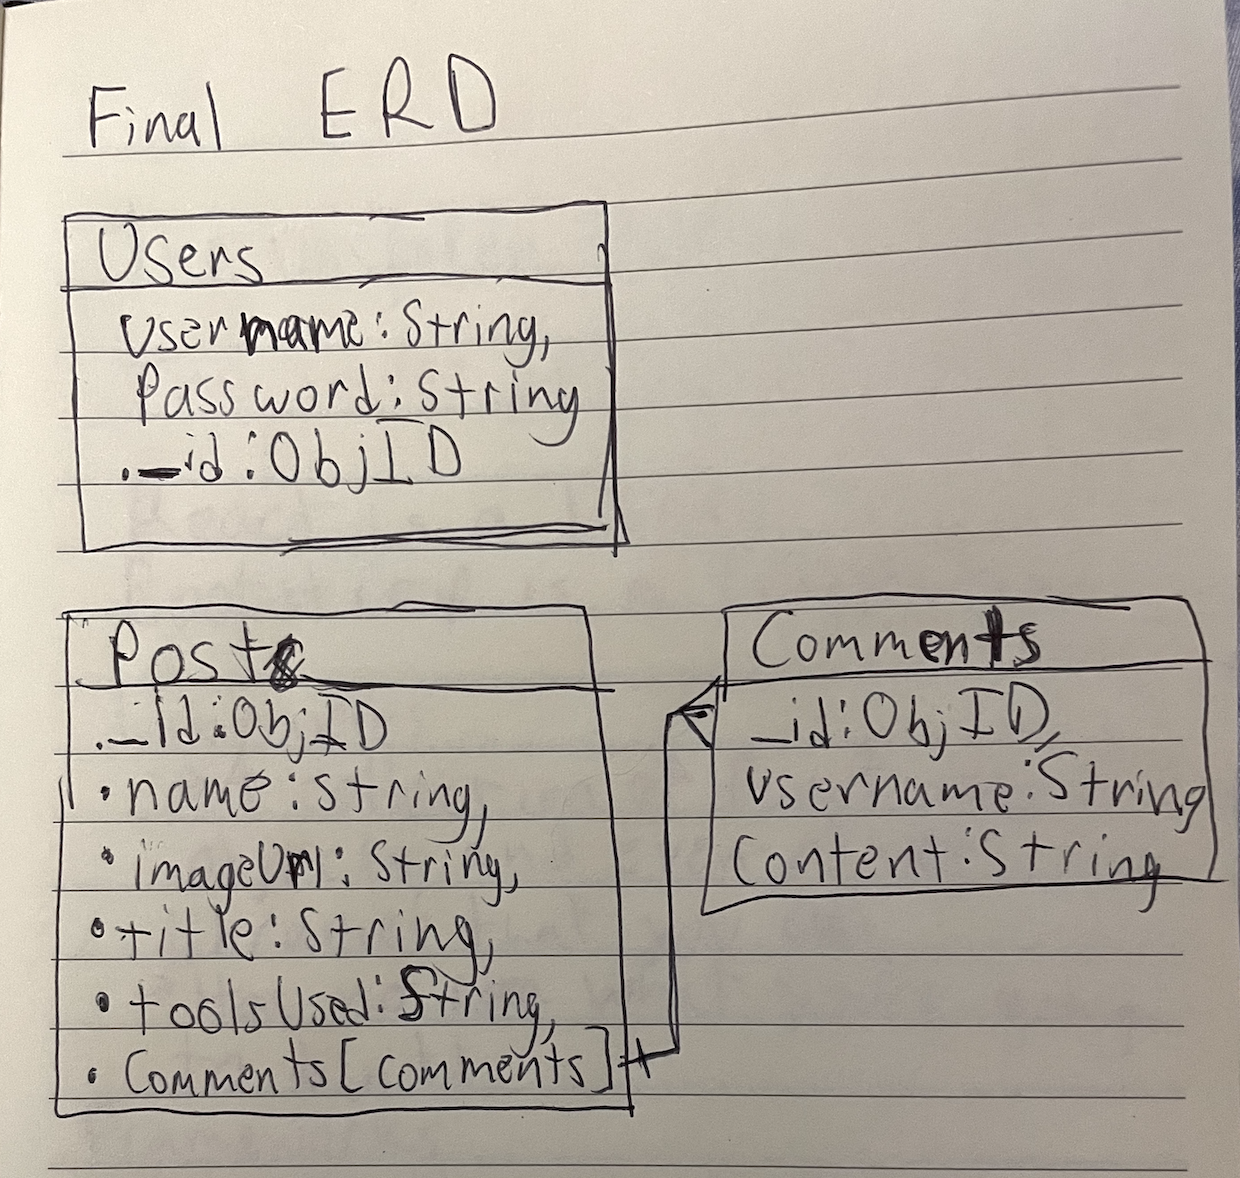 Final ERD
Users
username: String,
Password: String
._id: ObjID
Posts
._id: ObjID
• name: string,
• imageUrl: String,
• title: String,
• toolsUsed: String,
• Comments [comments]
Comments
_id: ObjID,
username: String
Content: String